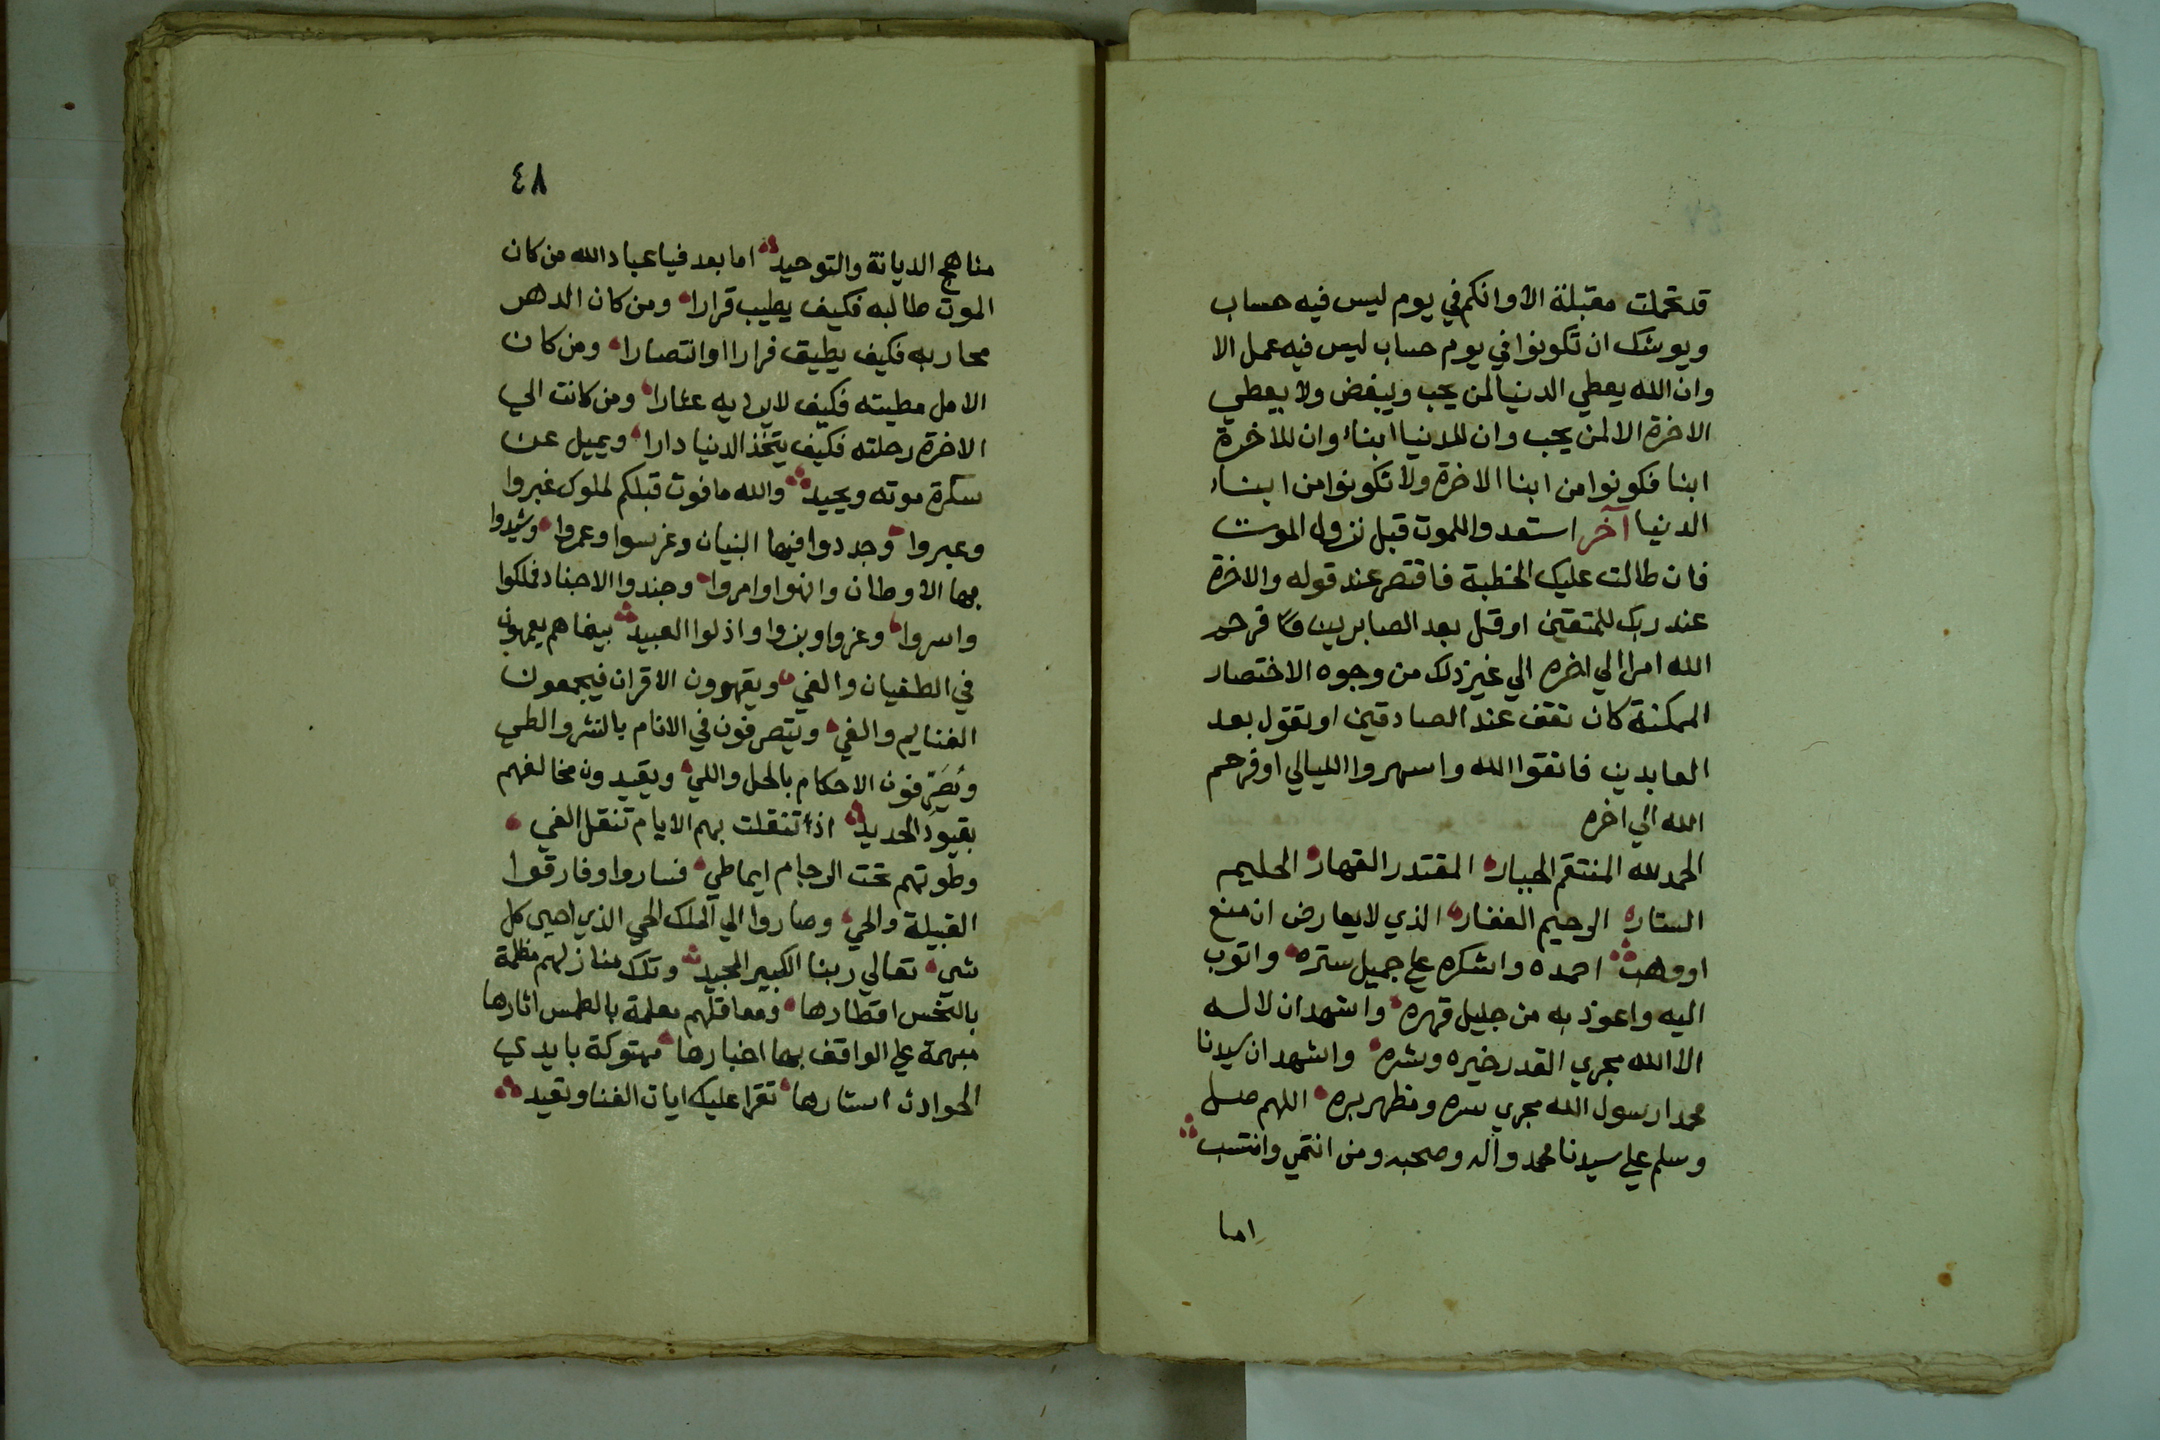 قد تحملت مقبلة الا وانكم في يوم ليس فيه حساب
ويوشك ان تكونوا في يوم حساب ليس فيه عمل الا
وان الله يعطي الدنيا لمن يحب ويبغض ولا يعطي
الاخرة الا لمن يحب وان للدنيا ابناء وان للاخرة
ابنا فكونوا من ابنا الاخرة ولا تكونوا من ابناء
الدنيا آخر استعدوا للموت قبل نزول الموت
فان طالت عليك الخطبة فاقتصر عند قوله والاخرة
عند ربك للمتقين او قل بعد الصابرين فرحم
الله امرا الي اخره الي غير ذلك من وجوه الاختصار
الممكنة كان تقف عند الصادقين او تقول بعد
العابدين فاتقوا الله واسهروا الليالي او فرحم
الله الي اخره
الحمد لله المنتقم الجبار المقتدر القهار الحليم
الستار الرحيم الغفار الذي لا يعارض ان منع
او وهب احمده واشكره علي جميل ستره واتوب
اليه واعوذ به من جليل قهره واشهد ان لا اله
الا الله مجري القدر خيره وشره واشهد ان سيدنا
محمدا رسول الله مجري سره ومظهر بره اللهم صل
وسلم علي سيدنا محمد وآله وصحبه ومن انتمي وانتسب
اما
٤٨
مناهج الديانة والتوحيد اما بعد فيا عباد الله من كان
الموت طالبه فكيف يطيب قرارا ومن كان الدهر
محاربه فكيف يطيق فرارا او انتصارا ومن كان
الامل مطيته فكيف لا يرديه عثارا ومن كانت الي
الاخرة رحلته فكيف يتخذ الدنيا دارا ويميل عن
سكرة موته ويحيد والله ما فوت قبلكم لملوك غبروا
وعبروا وجددوا فيها البنيان وغرسوا وعمروا وشيدوا
بها الاوطان وانهوا وامروا وجندوا الاجناد فملكوا
واسروا وعزوا وبزوا واذلوا العبيد بينما هم يعمهون
في الطغيان والغي ويقهرون الاقران فيجمعون
الغنايم والفي ويتصرفون في الانام بالنشر والطي
ويُصَرّفون الاحكام بالحل واللي ويقيدون مخالفهم
بقيود الحديد اذ تنقلت بهم الايام تنقل الفي
وطوتهم تحت الرجام ايما طي فساروا وفارقوا
القبيلة والحي وصاروا الي الملك الحي الذي احيى كل
شي تعالي ربنا الكبير المجيد وتلك منازلهم مظلمة
بالنحس اقطارها ومعاقلهم معلمة بالطمس اثارها
مبهمة علي الواقف بها اخبارها مهتوكة بايدي
الحوادث استارها تقرا عليك ايات الفنا وتعيد